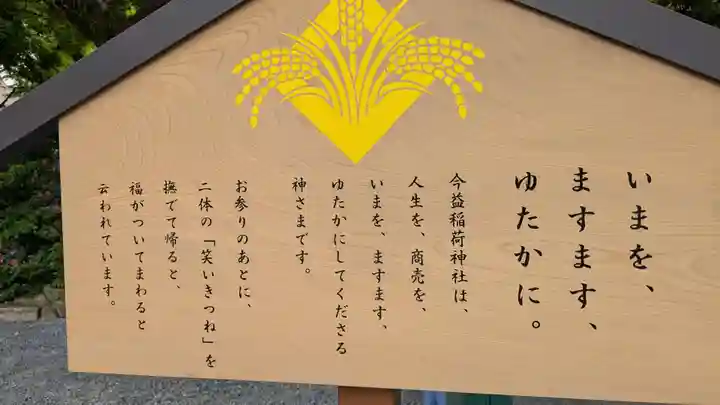 いまを、
ますます、
ゆたかに。
今益稲荷神社は、
人生を、商売を、
いまを、ますます、
ゆたかにしてくださる
神さまです。
お参りのあとに、
二体の「笑いきつね」を
撫でて帰ると、
福がついてまわると
云われています。